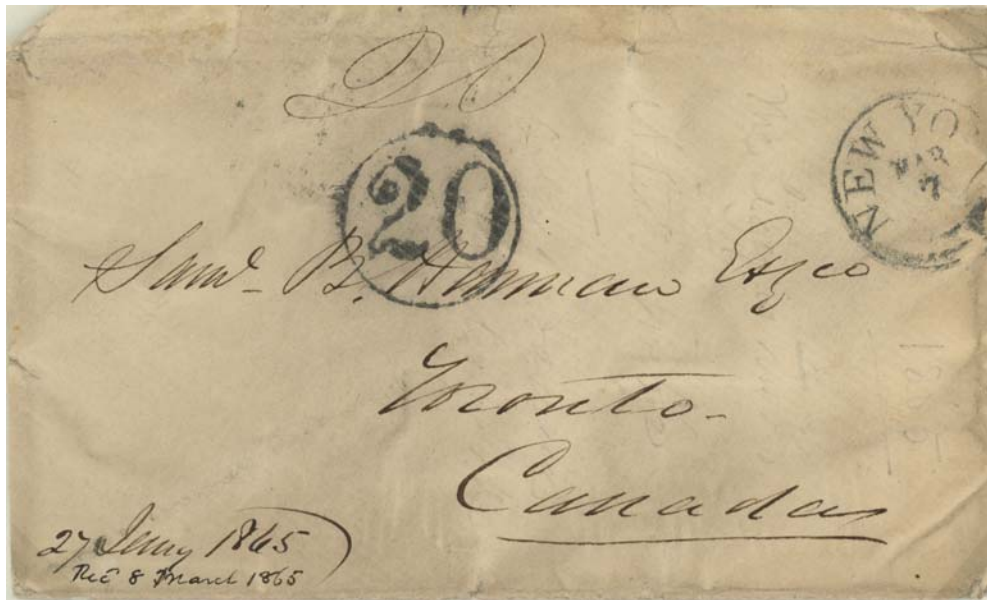 20
NEW YO
MAR
7
Saml. B. Harman Esqre
Toronto-
Canada
27 Jany 1865
Rec 8 March 1865